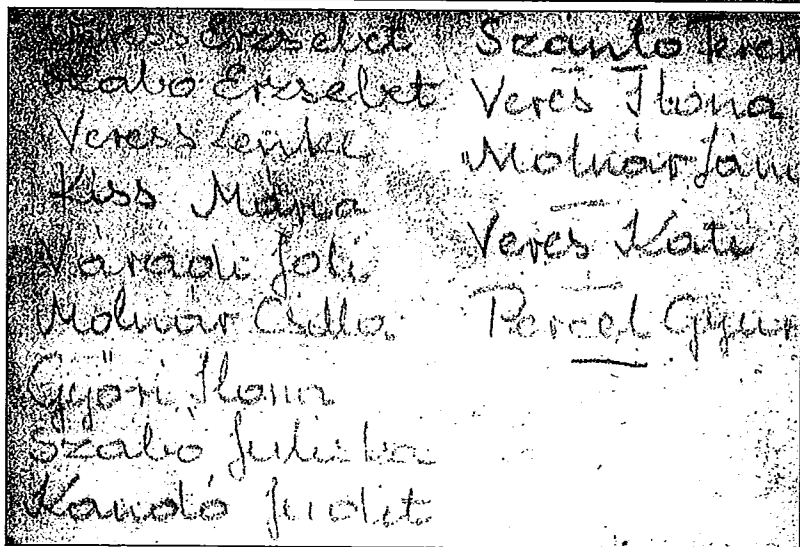 Veress Erzsébet
Szabó Erzsébet
Veress Lenke
Kiss Mária
Váradi Joli
Molnár Csilla
Győri Ilona
Szabó Juliska
Kandó Judit
Szántó Teren
Veres Ilona
Molnár Ján
Veres Kati
Percel Gyur